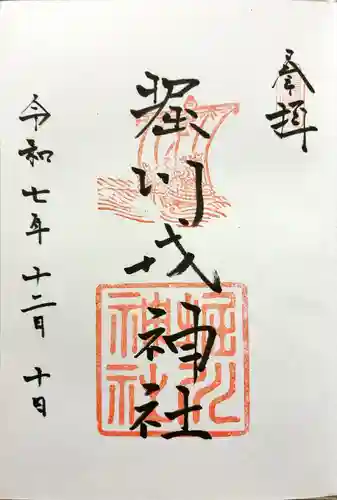 奉拝
堀川戎神社
令和七年十二月十日
堀川神社